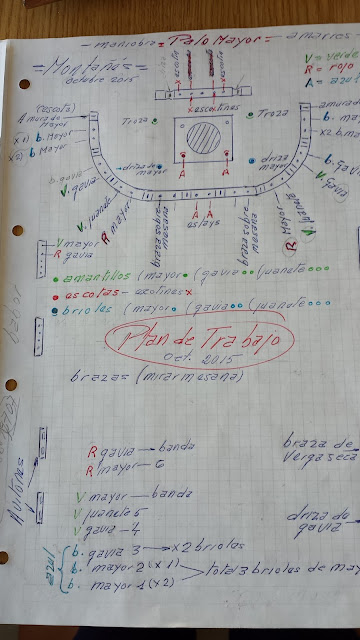 - maniobra = Palo Mayor = amarres -
= Montañés =
octubre 2015
V = verde
R = rojo
A = azul
escotines
(escota)
Amura de
Mayor
x1) b. Mayor
x2) b. Mayor
b. gavia
V. gavia
V. juanete
R mayor
Troza
Troza
driza de
mayor
driza
mayor
A A
A A
estays
braza sobre
mesana
braza sobre
mesana
amura
b. ma
x2 b. ma
b. Gavia
V. Gavia
R Mayor
V mayor
R gavia
amantillos (mayor (gavia (juanete
escotas - escotines x
brioles (mayor (gavia (juanete
Plan de Trabajo
Oct. 2015
brazas (mirar mesana)
babor
R gavia → banda
R mayor - 6
braza de
verga seca
V mayor — banda
V juanete 5
V gavia - 4
driza de
gavia
azul
b. gavia 3 → x2 briolas
b. mayor 2 (x1)
b. mayor 1 (x2)
total 3 brioles de may